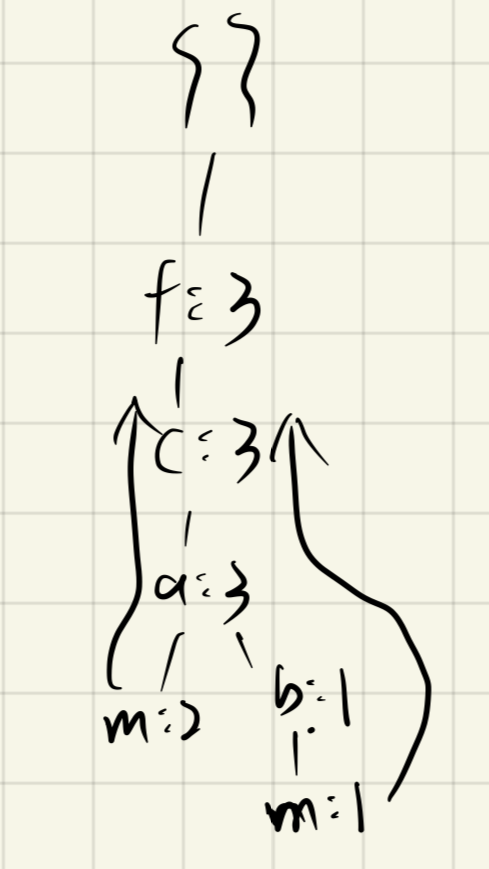 { }
f:3
c:3
a:3
m:2
b:1
m:1